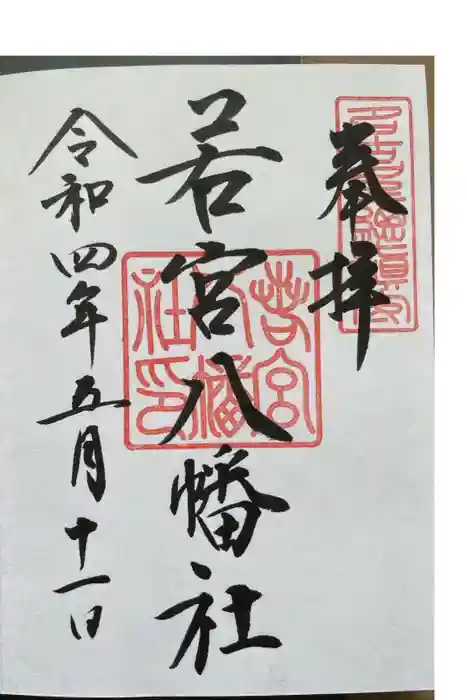 奉拝
若宮八幡社
令和四年五月十一日
若宮八幡社印